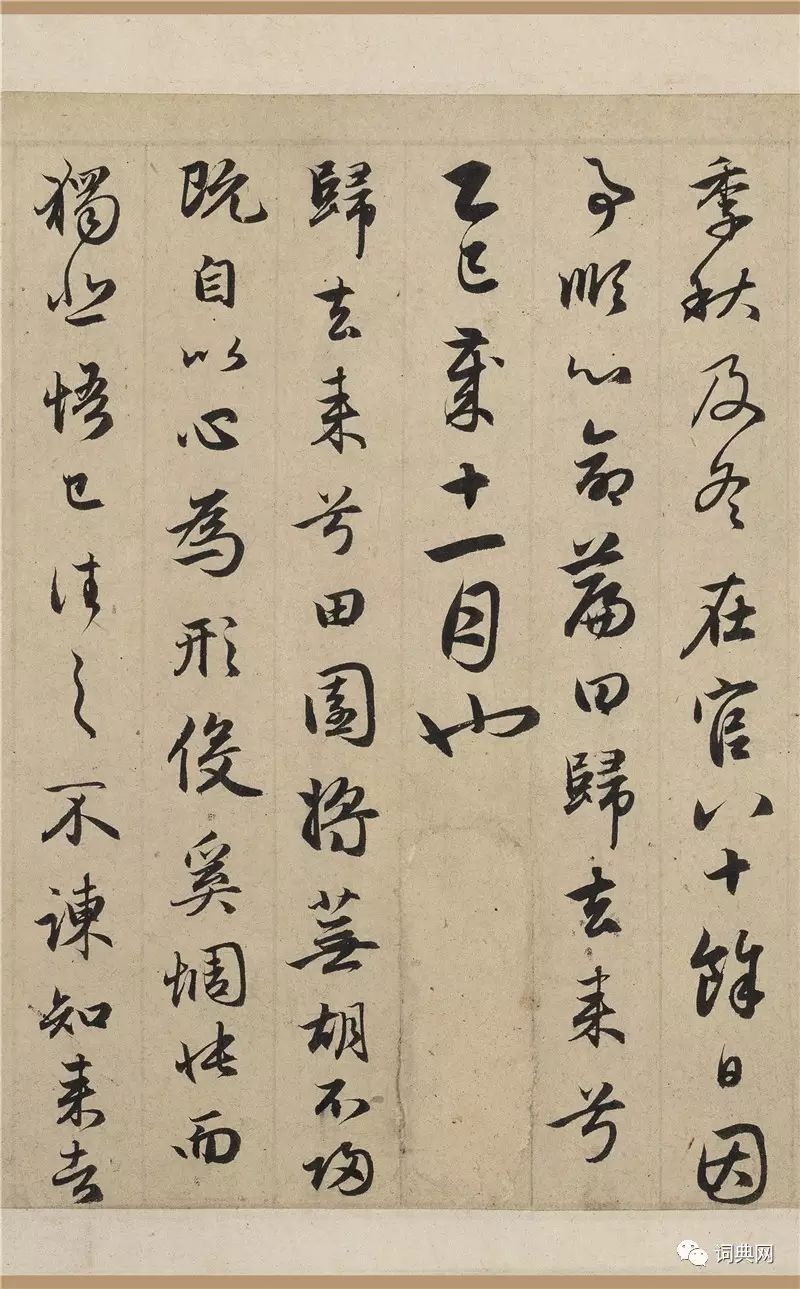 季秋及冬在官八十餘日因
事順心命篇曰歸去来兮
乙巳歲十一月也
歸去来兮田園將蕪胡不歸
既自以心為形役奚惆悵而
獨悲悟已往之不諫知来者
词典网